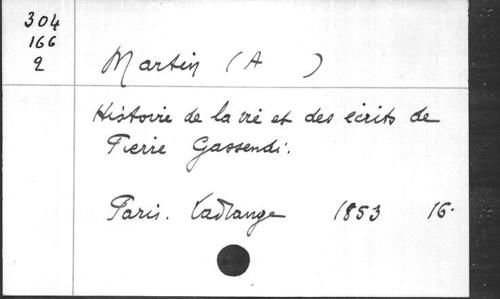 304
166
2
Martin (A )
Histoire de la vie et des écrits de
Pierre Gassendi.
Paris. Ladrange 1853 16.